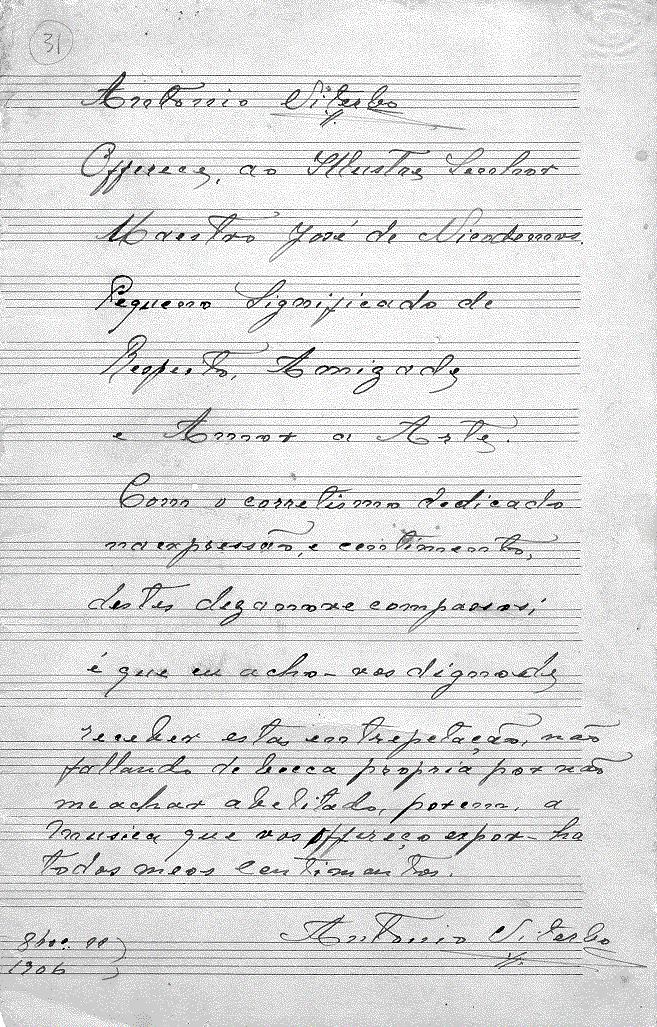 31
Antonio Viterbo
Offerece, ao Illustre Senhor
Maestro José de Nicodemos.
Pequeno Significado de
Respeito, Amizade
e Amor a Arte.
Com o corretismo dedicado
na expressão, e centimento,
destes dezanove compassos;
é que eu acho-vos digno de
receber estas entrepetação, não
fallando de bocca propria por não
me achar abelitado, porem, a
musica que vos offereço expor-ha
todos meos centimentos.
Antonio Viterbo
1906